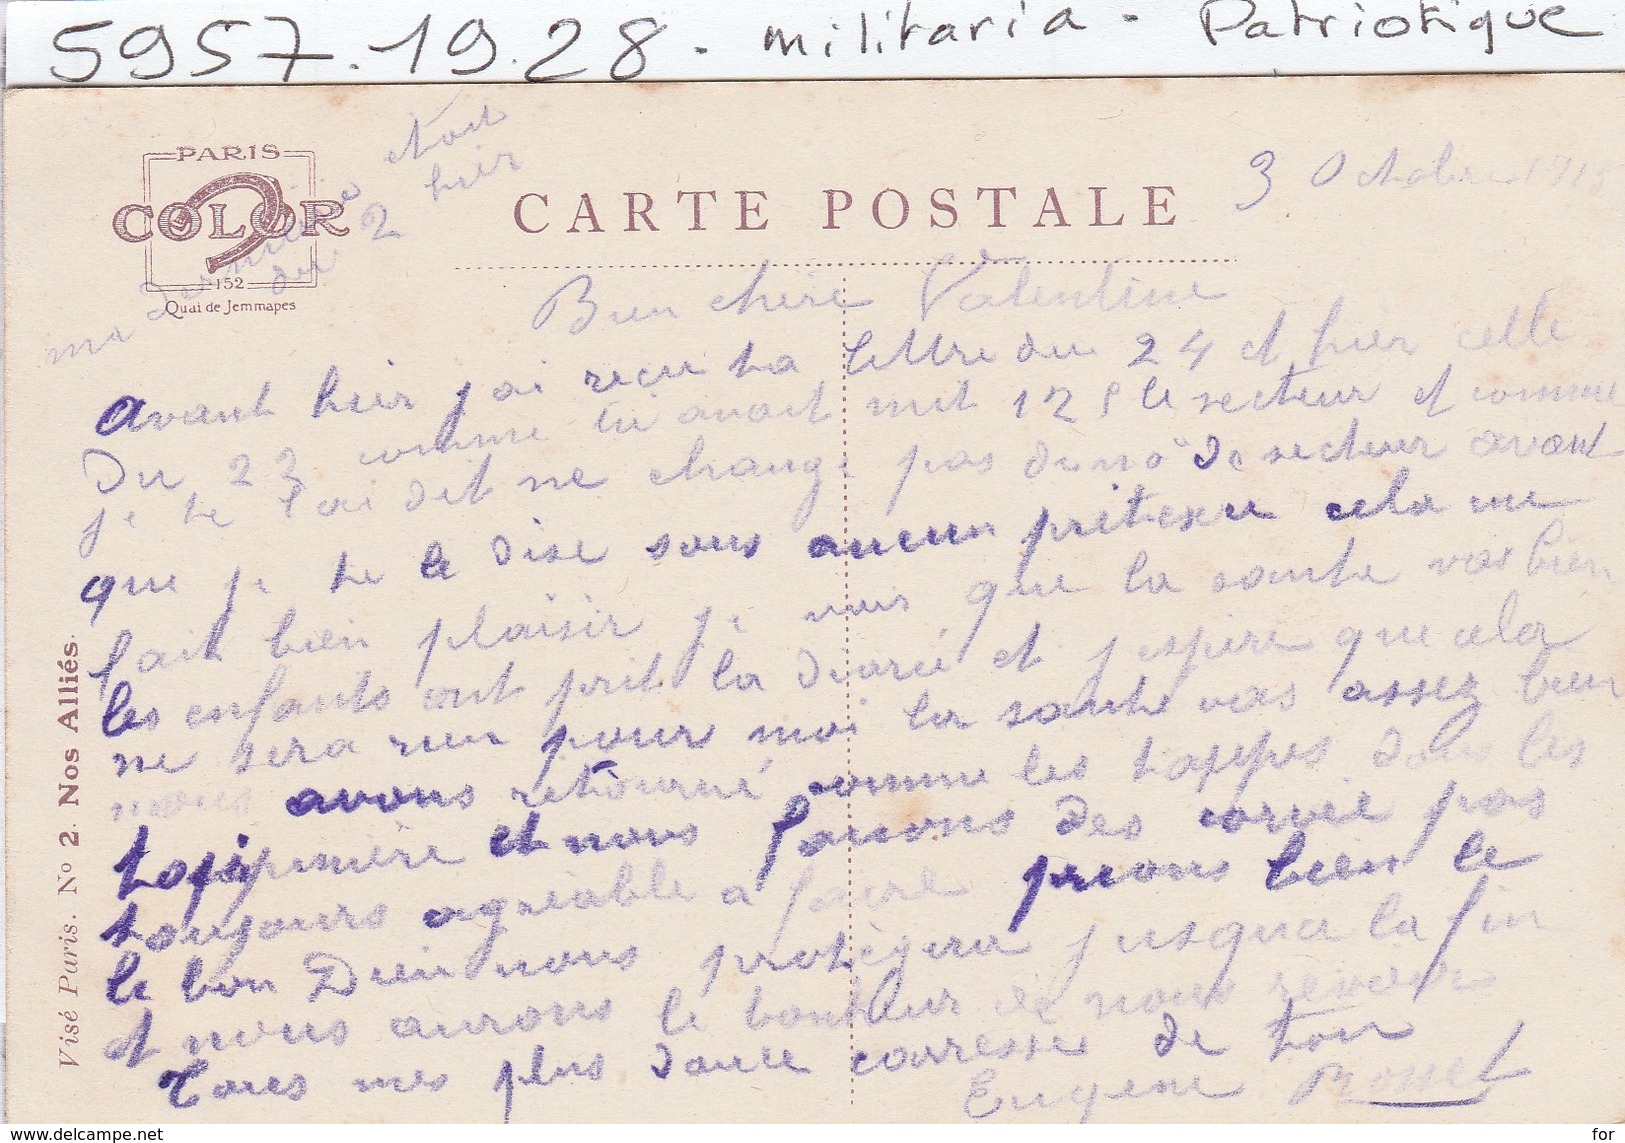 5957.19.28. militaria - Patriotique
PARIS
COLOR
152
Quai de Jemmapes
ma dernière était
du 2 hier
CARTE POSTALE
3 Octobre 191
Bien chère Valentine
avant hier j ai recu ta lettre du 24 et hier celle
Du 23 comme tu avait mit 125 le secteur et comme
je te l'ai dit ne change pas du no de secteur avant
que je te le dise sous aucun prétexte cela me
fait bien plaisir je vois que la sante vas bien
les enfants ont prit la diarié et j espère que cela
ne sera rien pour moi la sante vas assez bien
nous avons retourné comme les tappes dans les
et nous faisons des corvée pas
toujours agréable a faire prions bien le
le bon Dieu nous protègera jusqua la fin
et nous aurons le bonheur de nous revoir
mes plus douce carresses de ton
Eugene Rosset
Visé Paris. No 2. Nos Alliés.
for
www.delcampe.net